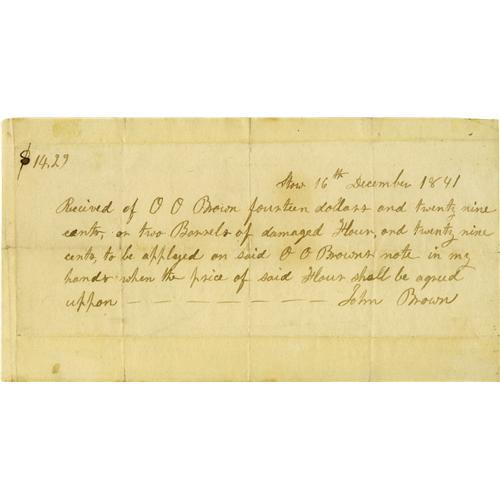 $14,29
Stow 16th December 1841
Received of O O Brown fourteen dollars and twenty nine
cents, or two Barrels of damaged Flour, and twenty nine
cents, to be applyed on said O O Browns note in my
hands when the price of said Flour shall be agreed
uppon — — — — — — — — John Brown